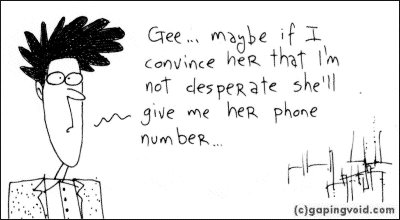 Gee... maybe if I
convince her that I'm
not desperate she'll
give me her phone
number...
(c)gapingvoid.com